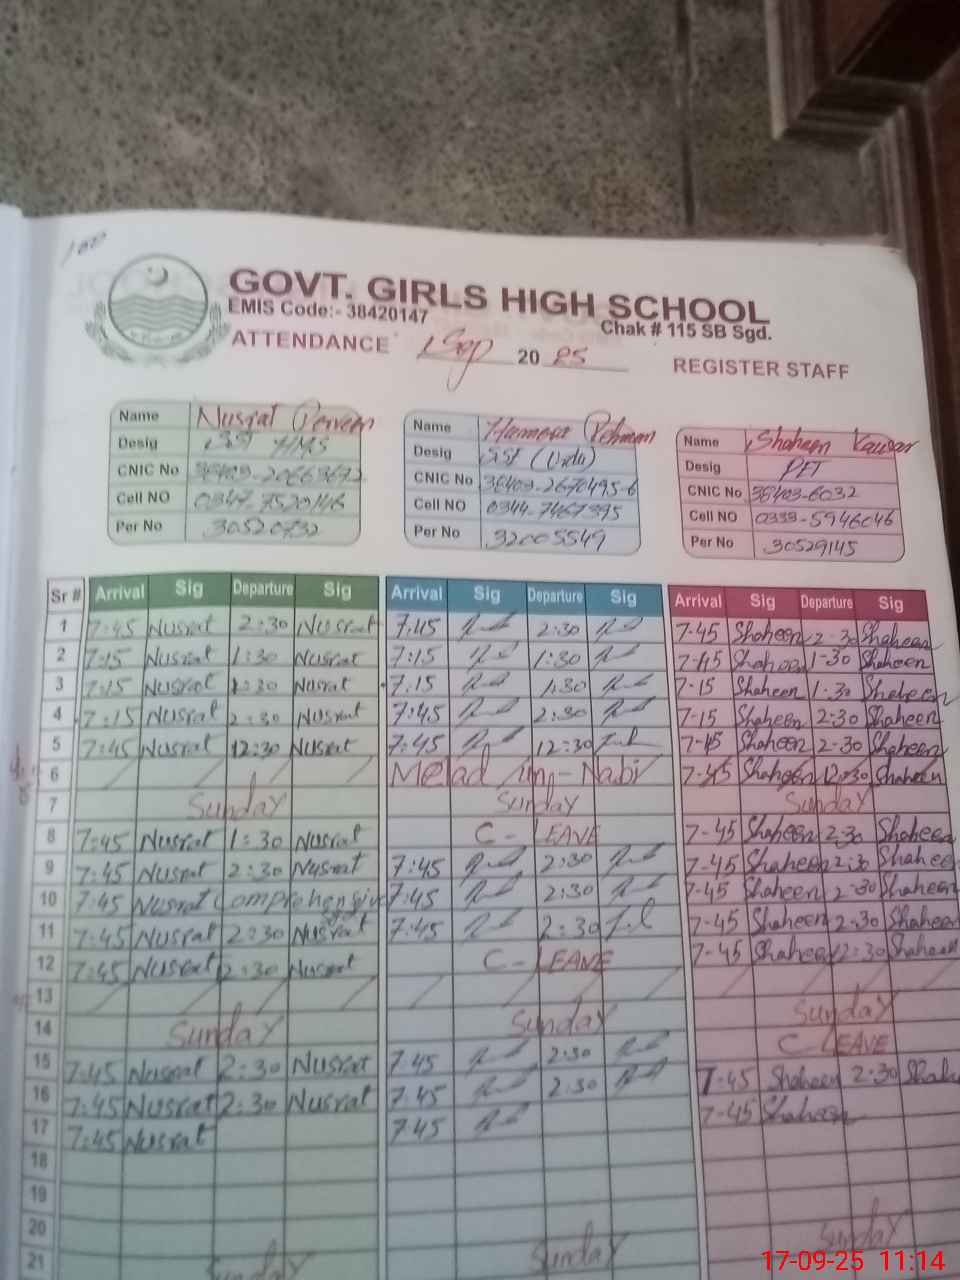 GOVT. GIRLS HIGH SCHOOL
EMIS Code:- 38420147 Chak # 115 SB Sgd.
ATTENDANCE Sep 2025 REGISTER STAFF
Name Nusrat Perveen
Desig SST HMS
CNIC No
Cell NO 0347-7520146
Per No 30520732
Name Rehman
Desig SST (Urdu)
CNIC No 38403-2670495-6
Cell NO 0344-7467395
Per No 32005549
Name Shaheen Kausar
Desig PET
CNIC No 38403-6032
Cell NO 0333-5946046
Per No 30529145
Sr # Arrival Sig Departure Sig Arrival Sig Departure Sig Arrival Sig Departure Sig
1 7:45 Nusrat 2:30 Nusrat 7:45 2:30 7-45 Shaheen 2-30 Shaheen
2 7:15 Nusrat 1:30 Nusrat 7:15 1:30 Shaheen 1-30 Shaheen
3 7:15 Nusrat 1:30 Nusrat 7:15 1:30 7-15 Shaheen 1-30 Shaheen
4 7:15 Nusrat 2:30 Nusrat 7:45 2:30 7-15 Shaheen 2-30 Shaheen
5 7:45 Nusrat 12:30 Nusrat 7:45 12:30 Shaheen 2-30 Shaheen
6 Melad Nabi 7-45 Shaheen 12-30 Shaheen
7 Sunday Sunday Sunday
8 7:45 Nusrat 1:30 Nusrat C-LEAVE 7-45 Shaheen 2-30 Shaheen
9 7:45 Nusrat 2:30 Nusrat 7:45 2:30 7-45 Shaheen 2:30 Shahee
10 7:45 Nusrat Comprehensive 7:45 2:30 7-45 Shaheen 2-30 Shaheen
11 7:45 Nusrat 2:30 Nusrat 7:45 2:30 7-45 Shaheen 2-30 Shaheen
12 7:45 Nusrat 2:30 Nusrat C-LEAVE 7-45 Shaheen 2:30 Shaheen
13
14 Sunday Sunday Sunday
C-LEAVE
15 7:45 Nusrat 2:30 Nusrat 7:45 2:30 7-45 Shaheen 2-30 Shah
16 7:45 Nusrat 2:30 Nusrat 7:45 2:30 7-45 Shaheen
17 7:45 Nusrat 7:45
18
19
20
21 Sunday Sunday Sunday
17-09-25 11:14